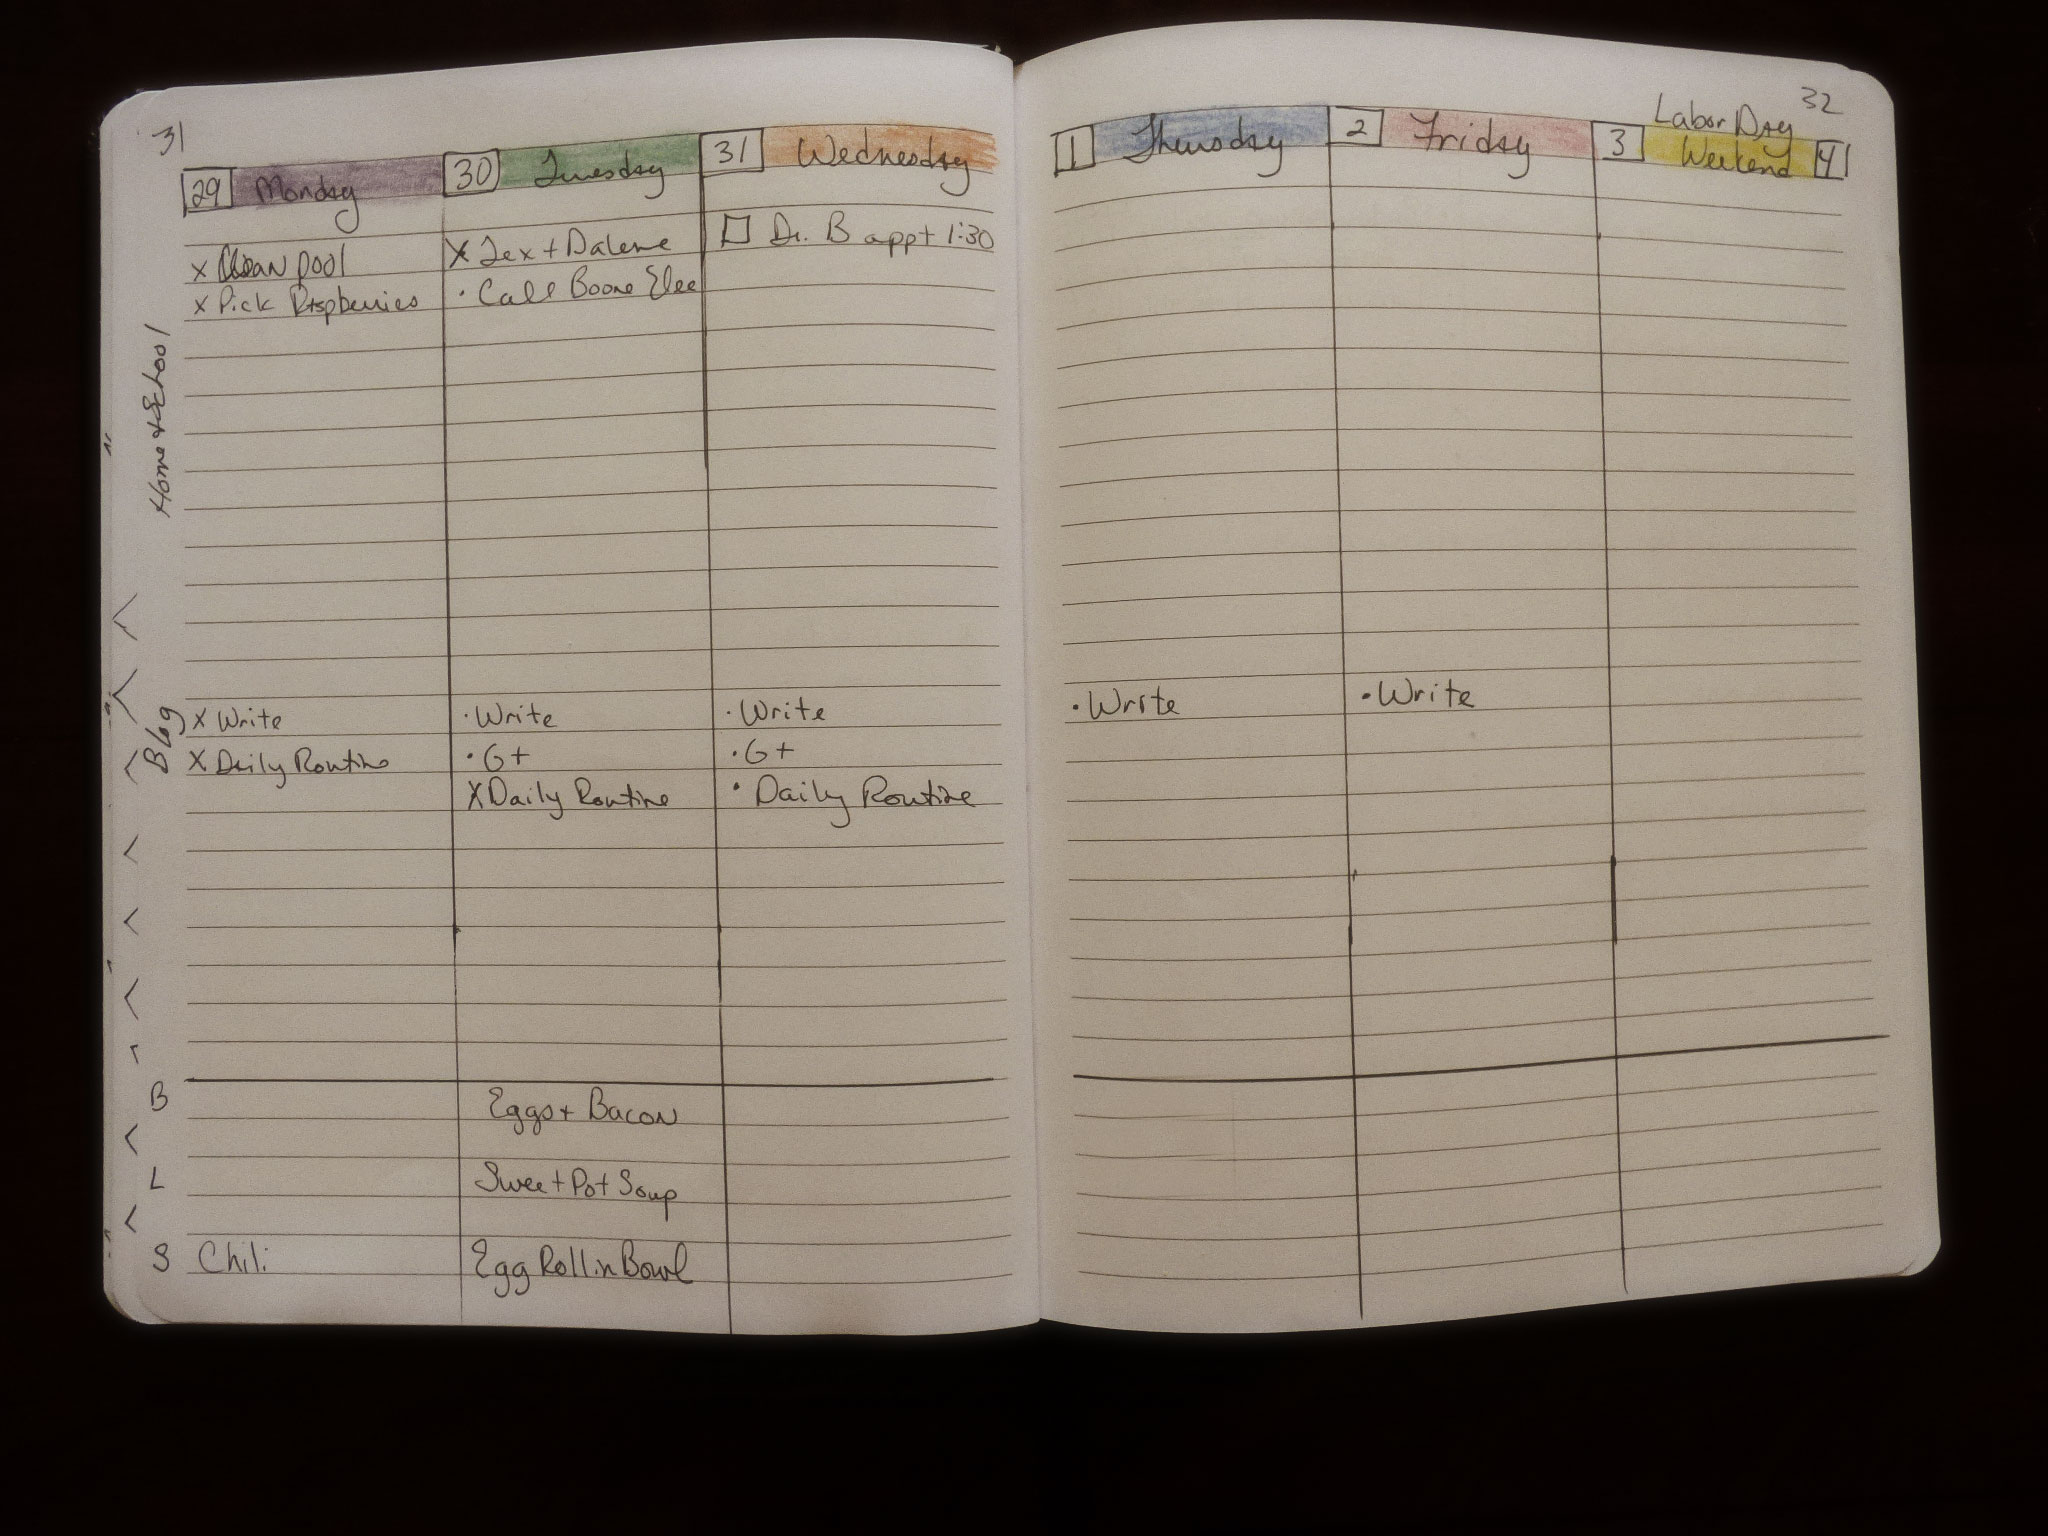 31
29 Monday
x Clean pool
x Pick Raspberries
Home & School
Blog
x Write
x Daily Routine
B
L
S
Chili
30 Tuesday
x Tex + Dalene
· Call Boone Elec
· Write
· G+
x Daily Routine
Eggs + Bacon
Sweet Pot Soup
Egg Roll in Bowl
31 Wednesday
Dr. B appt 1:30
· Write
· G+
· Daily Routine
32
1 Thursday
· Write
2 Friday
· Write
Labor Day
3 Weekend 4